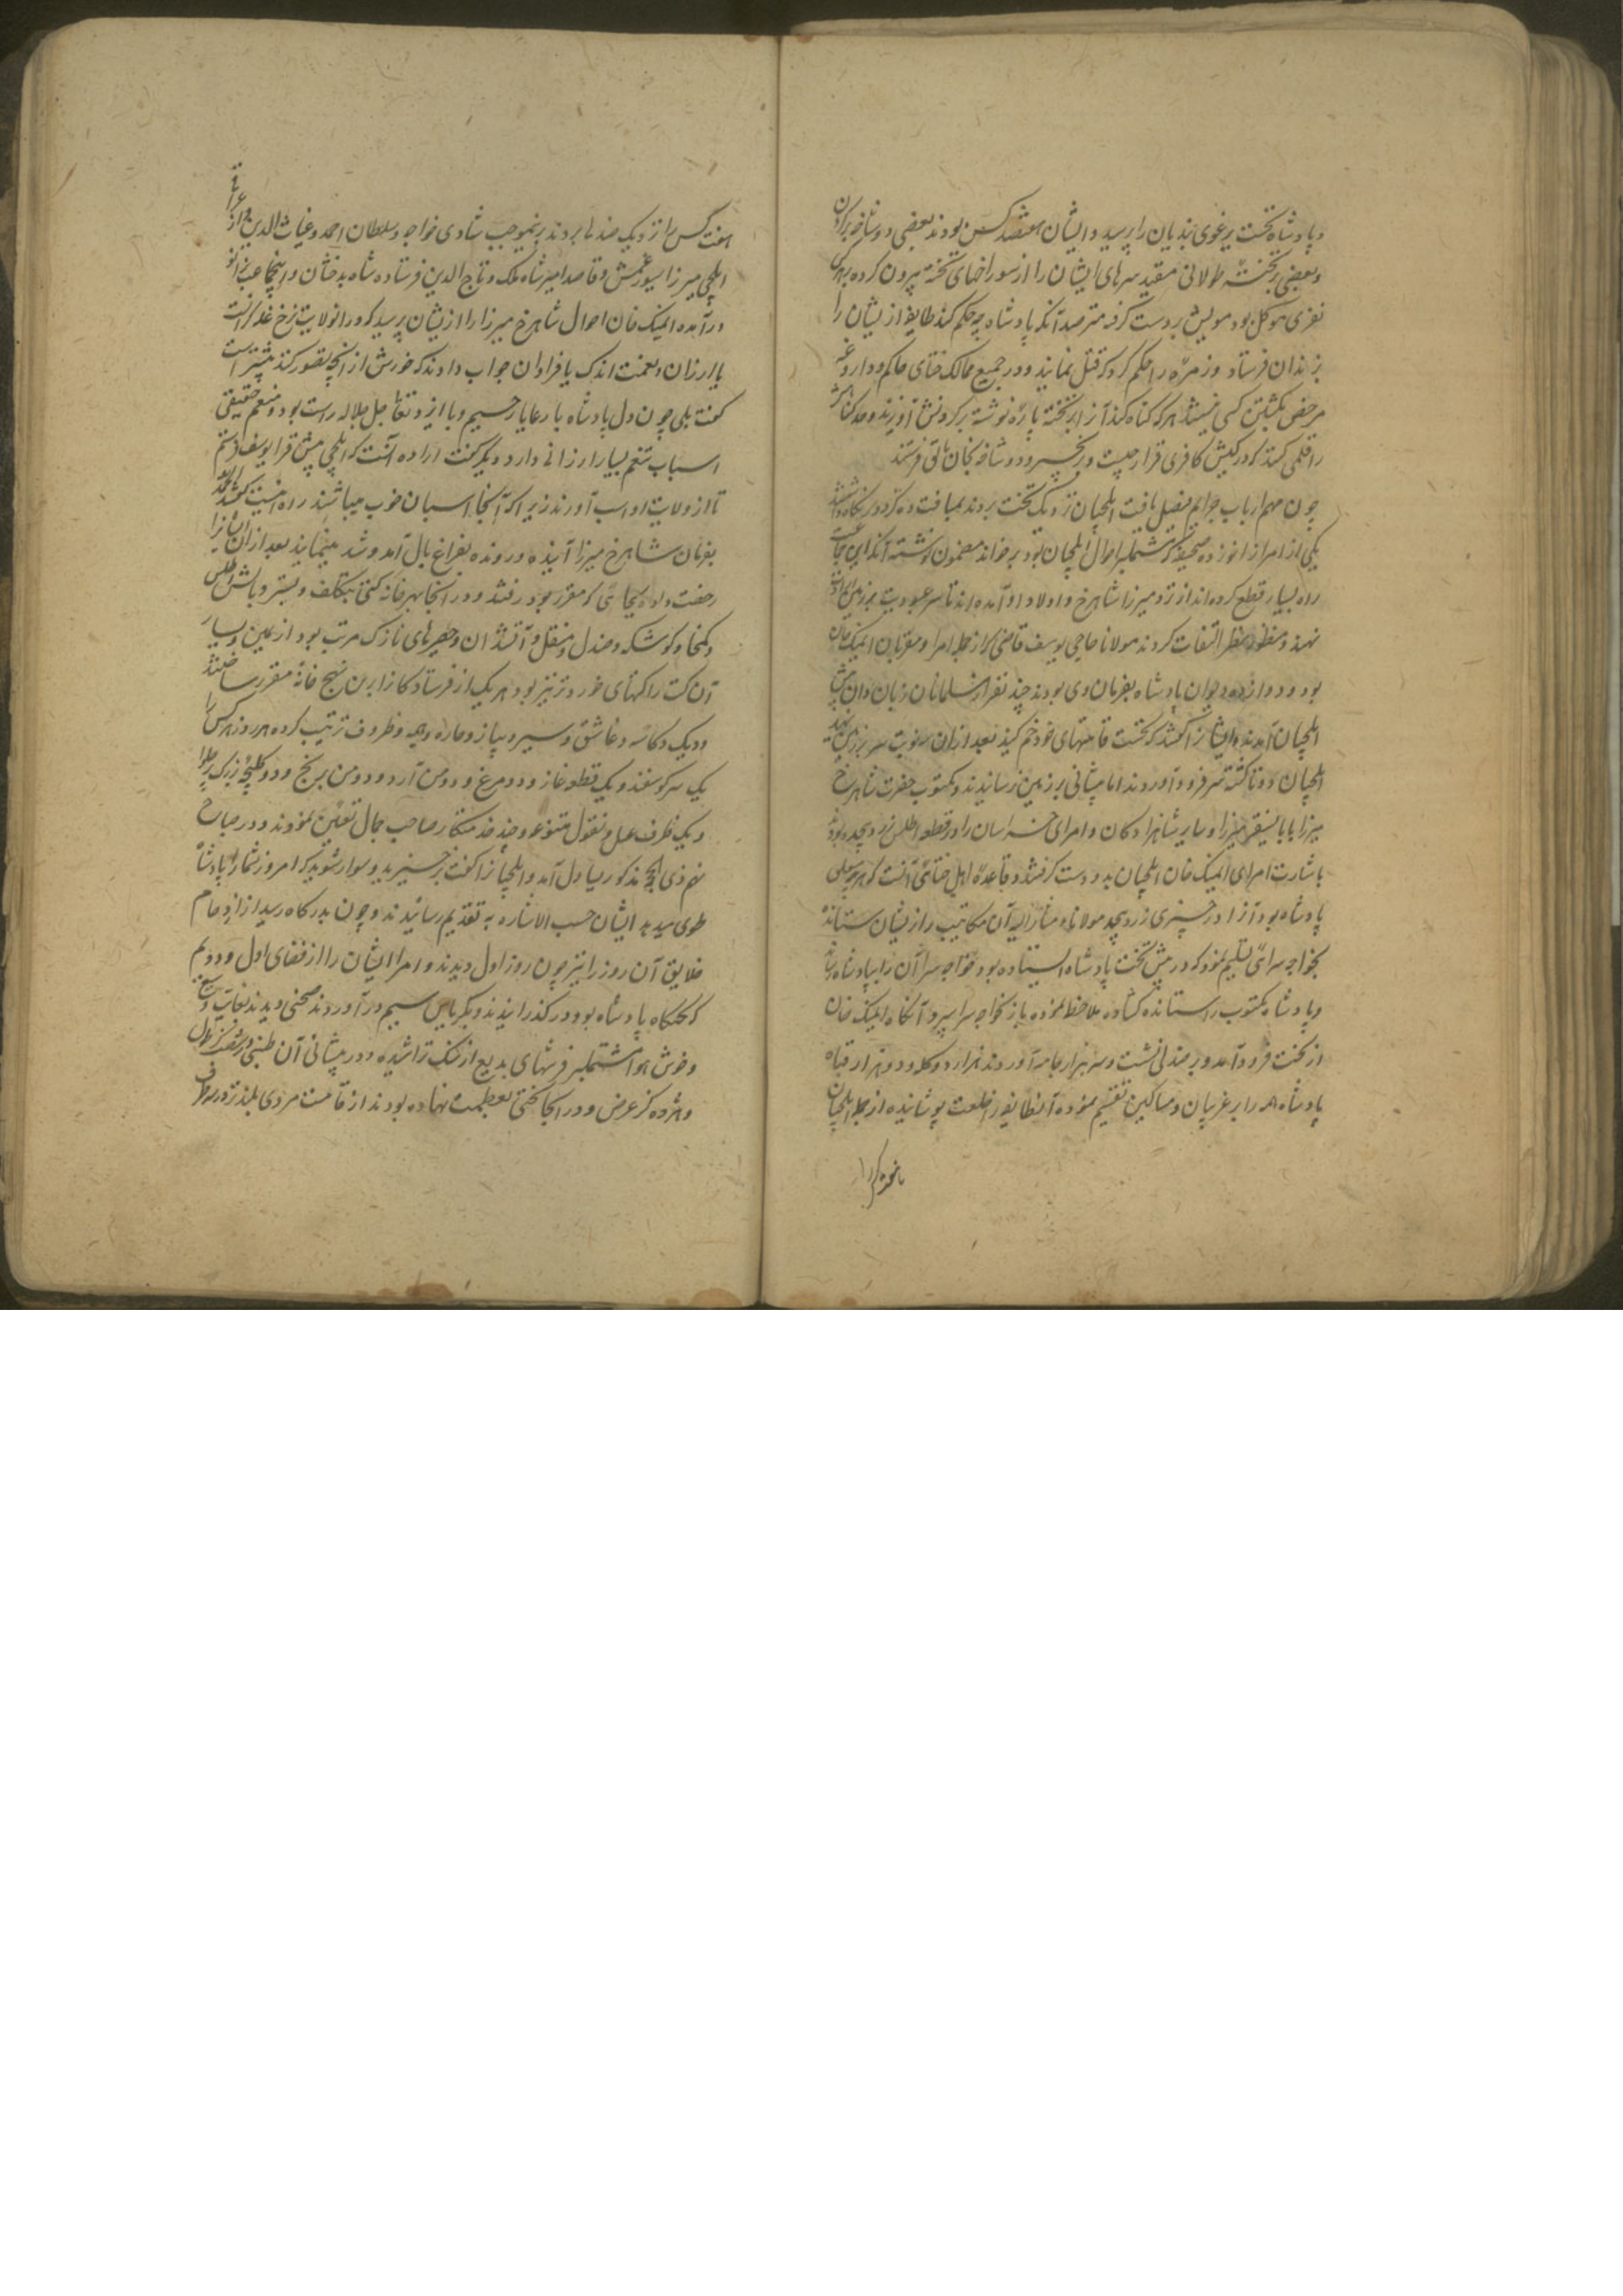 و پادشاه نخست یرغوی بندیان را پرسید و ایشان هفتصد کس بودند بعضی دوشاخه بر گردن
و بعضی بر تخته طولانی مقید سرهای ایشان را از سوراخهای تخته بیرون کرده بهر یکی
نفری موکل بود مویش بر دست گرفته مترصد آنکه پادشاه چه حکم کند طایفه از ایشان را
بزندان فرستاد و زمره را حکم کرد که قتل نمایند و در جمیع ممالک ختای حاکم و داروغه
مرخص بکشتن کسی نیستند هر که گناه کند آنرا بر تخته پاره نوشته بر گردنش آویزند و حد گناهش
را قلمی کنند که در کیش کافری قرار چیست و زنجیر و دوشاخه بخان بالق فرستند
چون مهم ارباب جرایم فیصل یافت ایلچیان نزدیک تخت بردند بمسافت ده گز دور نگاه داشتند
یکی از امرا زانو زده صحیفه که مشتمل بر احوال ایلچیان بود بر خواند مضمون نوشته آنکه این جماعت
راه بسیار قطع کرده‌اند از نزد میرزا شاهرخ و اولاد او آمده اند تا سر عبودیت بر زمین
نهند و منظور نظر التفات کردند مولانا حاجی یوسف قاضی که از جمله امرا و مقربان ایمنک خان
بود و دوازده دیوان پادشاه بفرمان وی بودند چند نفر از مسلمانان زبان دان پیش
ایلچیان آمدند و ایشانرا گفتند که نخست قامتهای خود خم کنید بعد از ان سه نوبت سر بر زمین نهید
ایلچیان دوتا گشته سر فرود آوردند اما پیشانی بر زمین نرسانیدند و مکتوب حضرت شاهرخ
میرزا با بایسنقر میرزا و سایر شاهزادگان و امرای خراسان را در قطعه اطلس زرد پیچیده بودند
باشارت امرای ایمنک خان ایلچیان بدو دست گرفتند و قاعده اهل ختای آنست که هر چه متعلق
پادشاه بود آنرا در چیزی زرد پیچند مولانای مشار الیه آن مکاتیب را از ایشان ستانده
بخواجه سرائی تسلیم نمود که در پیش تخت پادشاه ایستاده بود خواجه سرا آن را بپادشاه رساند
و پادشاه مکتوب را ستانده گشاده ملاحظه نموده باز بخواجه سرا سپرد آنگاه ایمنک خان
از تخت فرود آمد و بر صندلی نشست و سه هزار جامه آوردند هزار دکله و دو هزار قبا
پادشاه همه را بر غریبان و مساکین تقسیم نموده آنطایفه را خلعت پوشانیده از جمله ایلچیان
هفت کس را نزدیک صندلی بردند بدینموجب شادی خواجه و سلطان احمد و غیاث الدین و ارغداق
ایلچی میرزا سیورغتمش و قاصد امیر شاه ملک و تاج الدین فرستاده شاه بدخشان و اینجماعت بزانو
در آمده ایمنک خان احوال شاهرخ میرزا را از ایشان پرسید که در انولایت نرخ غله گرانست
یا ارزان و نعمت اندک یا فراوان جواب دادند که خورش از آنچه تصور کنند بیشتر است
گفت بلی چون دل پادشاه با رعایا رحیم و با ایزد تعالی جل جلاله راست بود و منعم حقیقی
اسباب تنعم بسیار ارزانی دارد و دیگر گفت اراده آنست که ایلچی پیش قرا یوسف فرستم
تا از ولایت او اسب آورند زیرا که آنجا اسبان خوب میباشند راه امنست گفتند
بفرمان شاهرخ میرزا آینده و رونده بفراغ بال آمد و شد مینمایند بعد از ان ایشانرا
رخصت داد و بجائی که مقرر بود رفتند و در آنجا بهر خانه کتی بتکلف و بستر و بالش اطلس
و کمخا و کوشکه و صندل و منقل و آتشدان و حصیرهای نازک مرتب بود از یمین و یسار
آن کت را کتهای خوردتر نیز بود هر یک از فرستادگان را برین نهج خانه مقرر ساختند
و دیگ و کاسه و قاشق و سیر و پیاز و ظروف ترتیب کرده هر روز هر کس را
یک سر گوسفند و یک قطعه غاز و دو مرغ و دو من آرد و دو من برنج و دو کلیچه بزرگ پر حلوا
و یک ظرف عسل و نقول متنوعه و چند خدمتکار صاحب جمال تعیین نمودند و در صباح
نهم ذی الحجه مذکور یساول آمد و ایلچیانرا گفت برخیزید و سوار شوید که امروز شما را پادشاه
طوی میدهد ایشان حسب الاشاره به تقدیم رسانیدند و چون بدرگاه رسیدند از ازدحام
خلایق آن روز را نیز چون روز اول دیدند و امرا ایشان را از فضای اول و دویم
که تختگاه پادشاه بود در گذرانیدند و بکریاس سیم در آوردند صحنی دیدند بغایت وسیع
و خوش هوا مشتمل بر فرشهای بدیع از سنگ تراشیده و در پیشانی آن طنبی شصت گز طول
و هژده گز عرض و در انجا تختی بعظمت نهاده بودند از قامت مردی بلندتر و